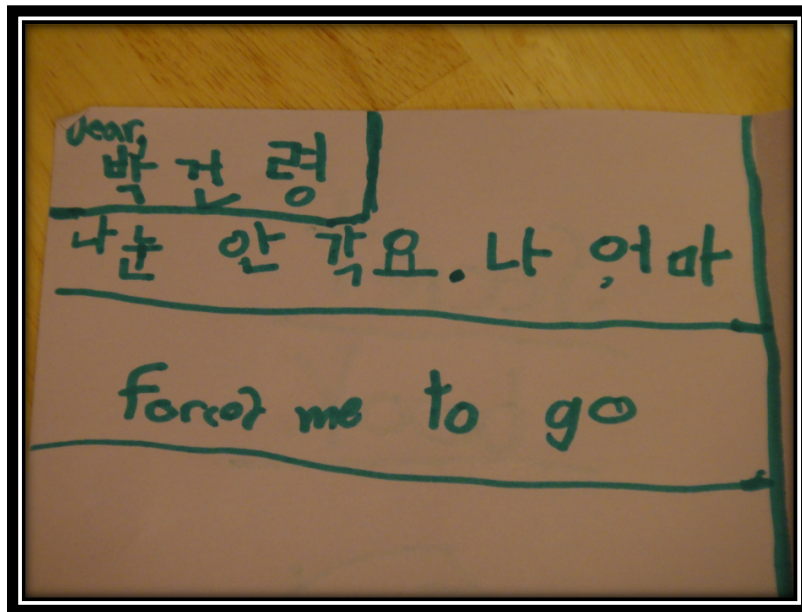 Dear,
박건령
나눈 안 각요. 나 어마
forced me to go